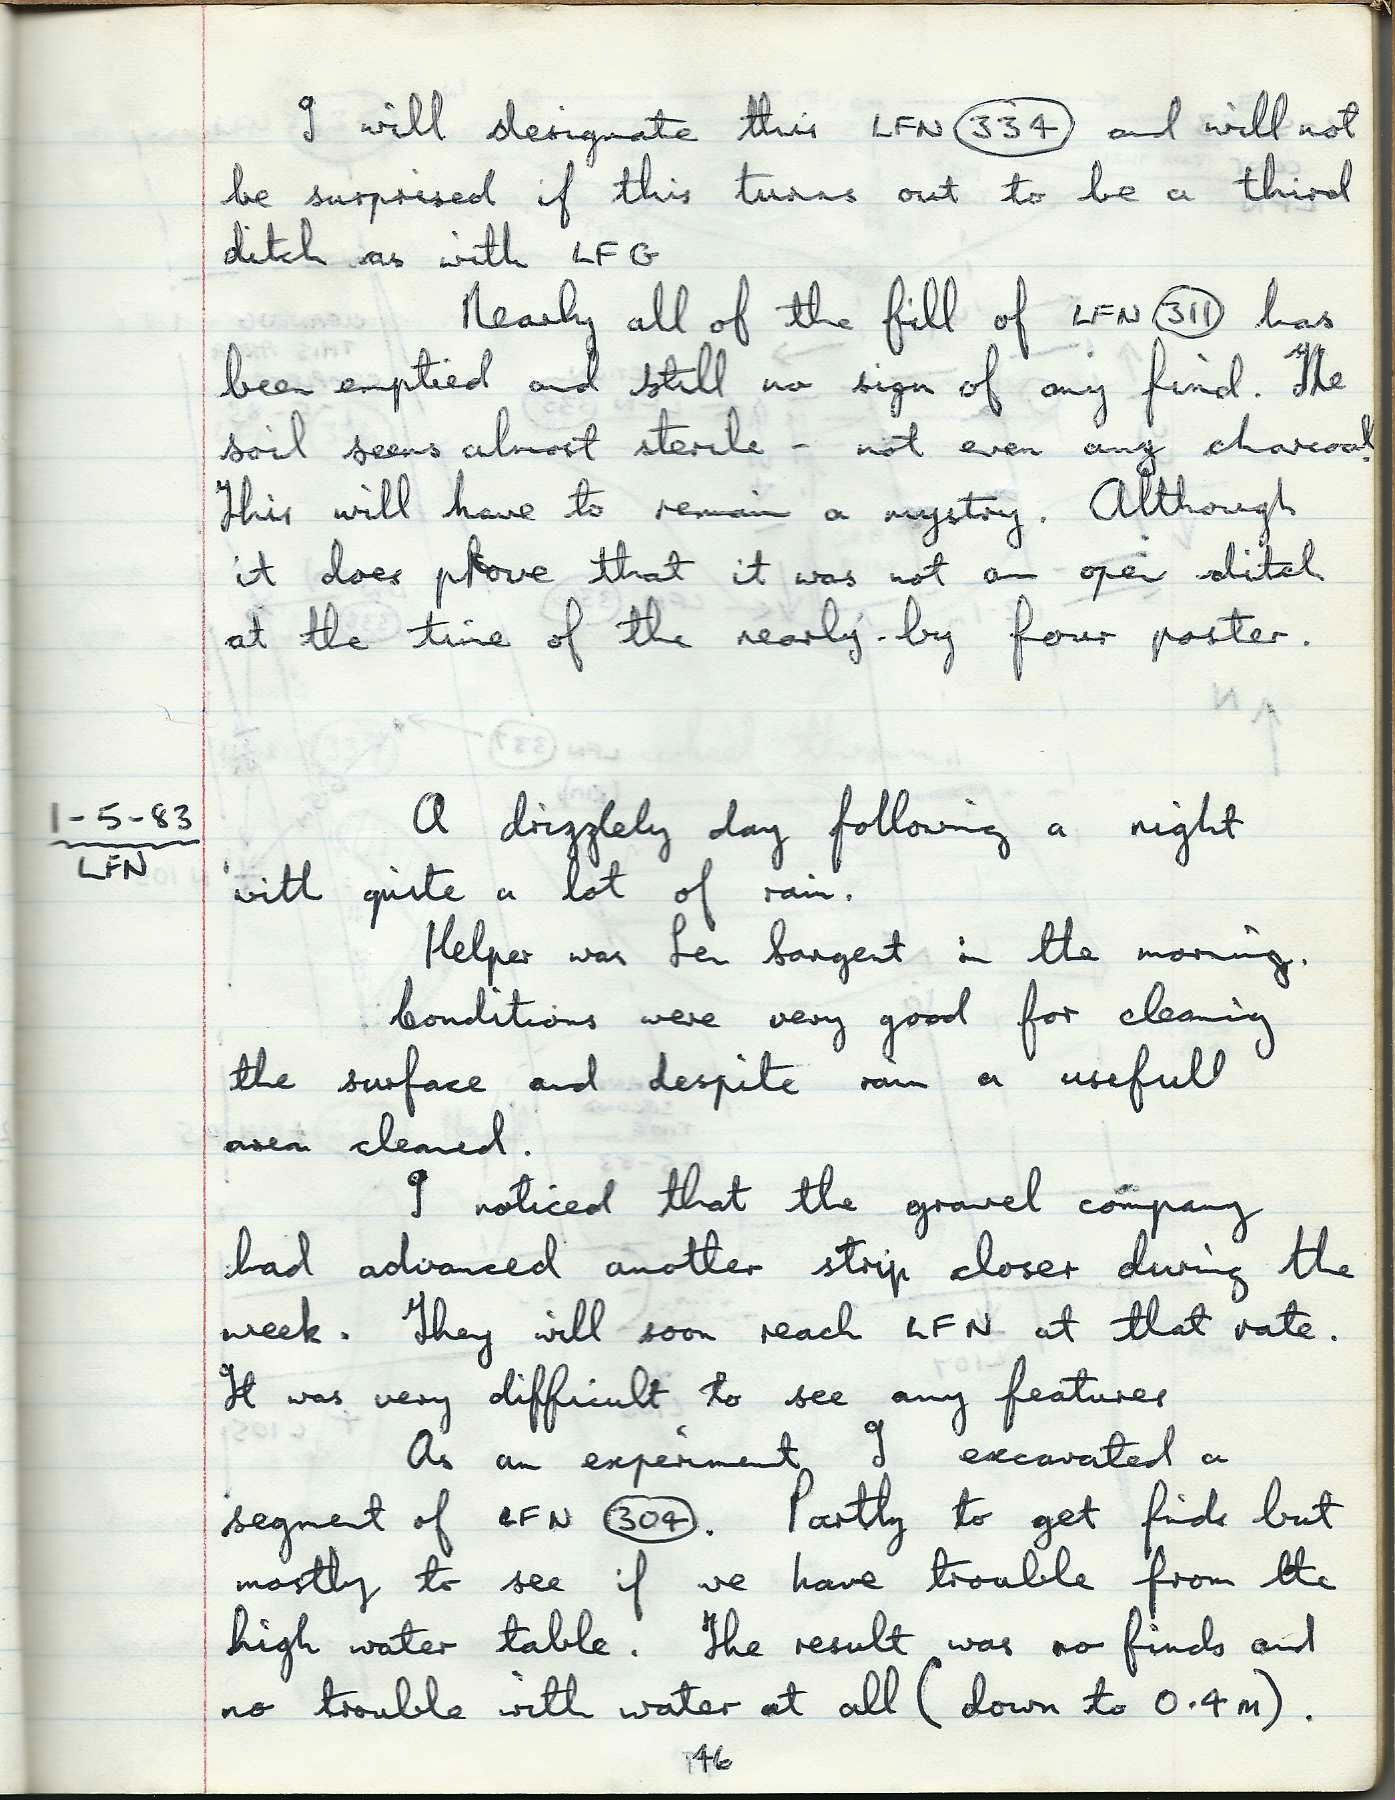 I will designate this LFN 334 and will not
be surprised if this turns out to be a third
ditch as with LFG
Nearly all of the fill of LFN 311 has
been emptied and still no sign of any find. The
soil seems almost sterile - not even any charcoal.
This will have to remain a mystry. Although
it does prove that it was not an open ditch
at the time of the nearly-by four poster.
1-5-83
LFN
A drizzlely day following a night
with quite a lot of rain.
Helper was Len Sargent in the morning.
Conditions were very good for cleaning
the surface and despite rain a usefull
area cleaned.
I noticed that the gravel company
had advanced another strip closer during the
week. They will soon reach LFN at that rate.
It was very difficult to see any features
As an experiment I excavated a
segment of LFN 304. Partly to get finds but
mostly to see if we have trouble from the
high water table. The result was no finds and
no trouble with water at all (down to 0.4m).
46